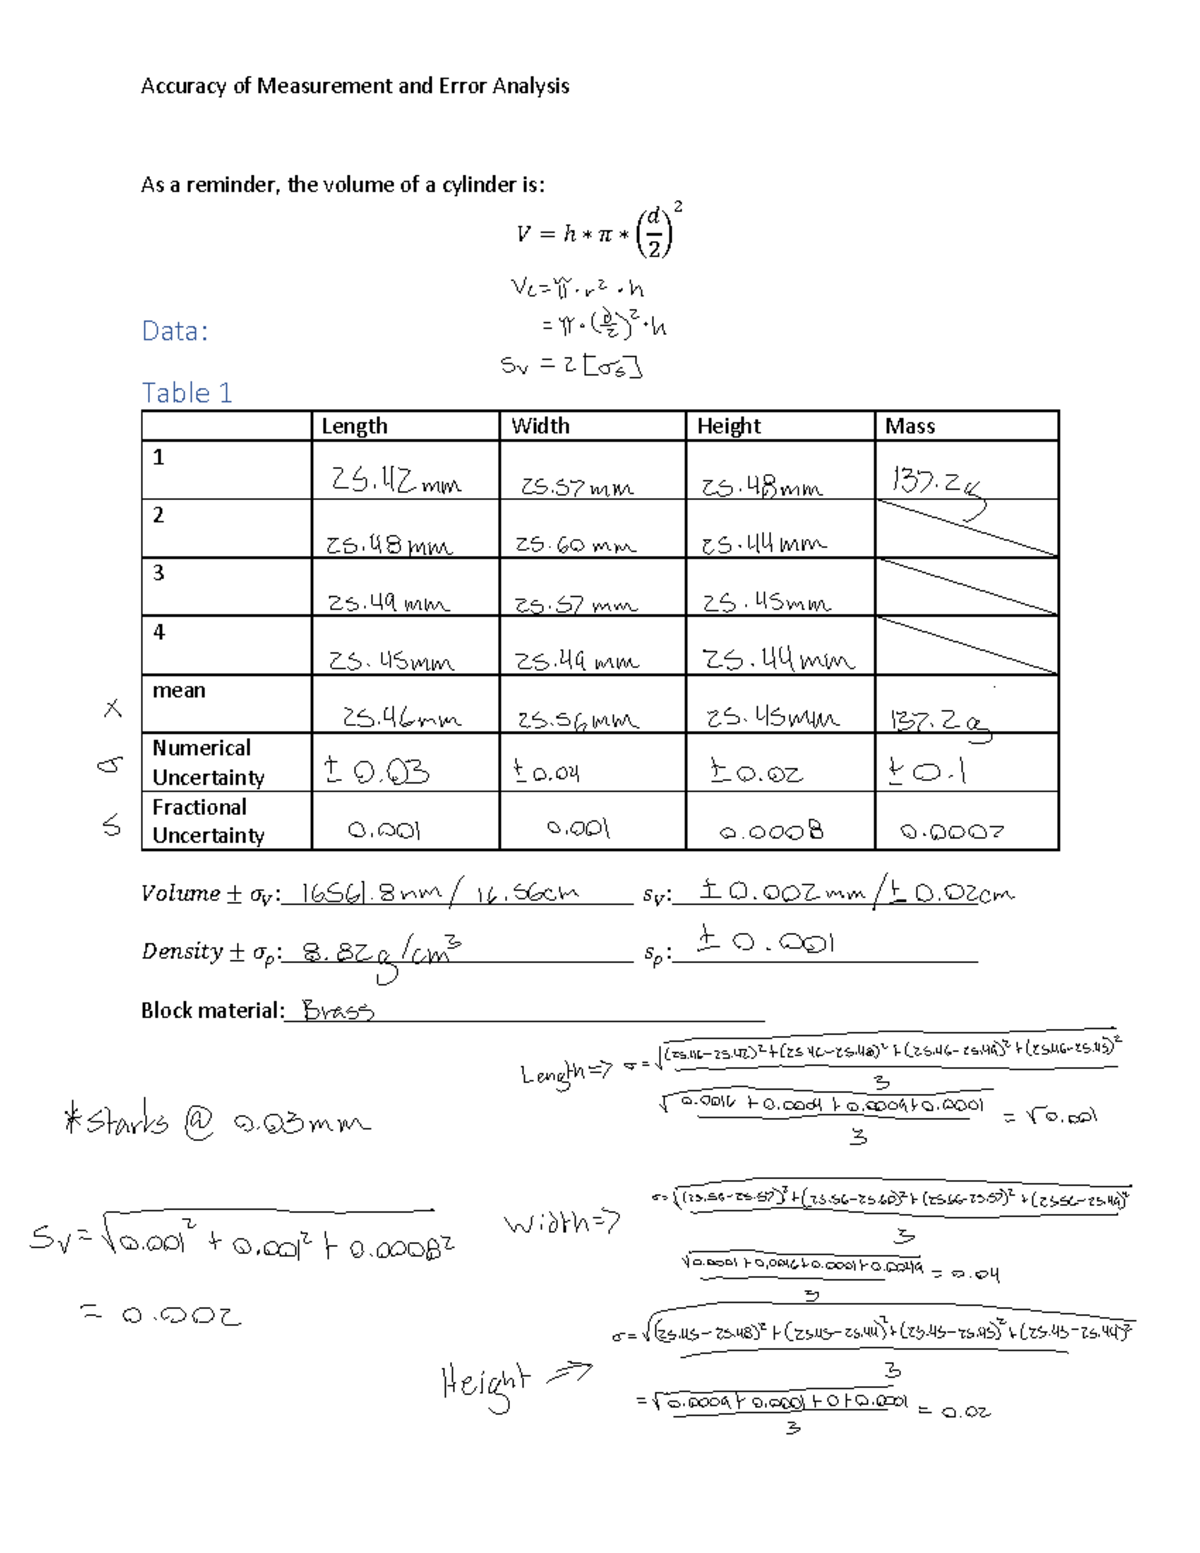 Accuracy of Measurement and Error Analysis
As a reminder, the volume of a cylinder is:
V = h * π * (d/2)²
Vc = π · r² · h
= π · (d/2)² · h
Data:
Sv = 2 [σs]
Table 1
Length Width Height Mass
1 25.42 mm 25.57 mm 25.48 mm 137.2 g
2 25.48 mm 25.60 mm 25.44 mm
3 25.49 mm 25.57 mm 25.45 mm
4 25.45 mm 25.49 mm 25.44 mm
x mean 25.46 mm 25.56 mm 25.45 mm 137.2 g
σ Numerical Uncertainty ± 0.03 ± 0.04 ± 0.02 ± 0.1
s Fractional Uncertainty 0.001 0.001 0.0008 0.0007
Volume ± σV: 16561.8 mm / 16.56cm sV: ± 0.002 mm / ± 0.02cm
Density ± σρ: 8.82g/cm³ sρ: ± 0.001
Block material: Brass
Length => σ = √(25.46-25.42)² + (25.46-25.48)² + (25.46-25.49)² + (25.46-25.45)²
3
√0.0016 + 0.0004 + 0.0009 + 0.0001 = √0.001
3
*starts @ 0.03mm
Width => σ = √(25.56-25.57)² + (25.56-25.60)² + (25.56-25.57)² + (25.56-25.49)²
3
√0.0001 + 0.0016 + 0.0001 + 0.0049 = 0.04
3
Sv = √0.001² + 0.001² + 0.0008²
= 0.002
Height => σ = √(25.45-25.48)² + (25.45-25.44)² + (25.45-25.45)² + (25.45-25.44)²
3
= √0.0009 + 0.0001 + 0 + 0.0001 = 0.02
3